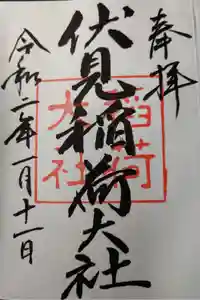 奉拝
伏見稲荷大社
稲荷
大社
令和二年一月十一日